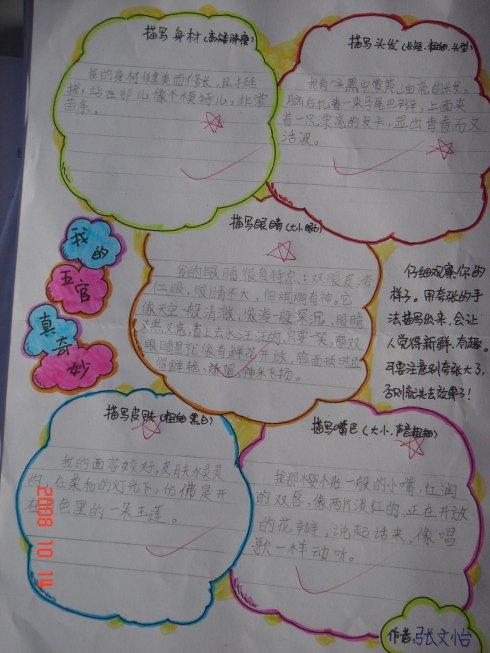 描写身材(高矮胖瘦)
我的身材健美而修长,且挺
拔,站在那儿像个模特儿,非常
苗条。
描写头发(长短、粗细、头型)
我有一头黑中带黄,油亮的长发,
脑后扎着一束马尾巴辫,上面夹
着一只漂亮的发卡,显出青春而又
活泼。
我的
五官
真奇妙
描写眼睛(大小、眼)
我的眼睛很有特点:双眼皮
仁眼,眼睛不大,但炯炯有神。它
像天空一般清澈,像海一般深沉,眼睛
又黑又亮,看上去水汪汪的,只要一笑,那双
眼睛里就像有鲜花开放,脸面
得鲜艳、神采飞扬。
仔细观察你的
样子。用夸张的手
法描写出来,会让
人觉得新鲜、有趣。
可要注意别夸张大了,
否则就失去效果了!
描写皮肤(粗细黑白)
我的面容姣好,皮肤水灵灵
的,在柔和的灯光下,仿佛是开
在色里的一朵玉莲。
描写嘴巴(大小、声音粗细)
我那樱个桃一般的小嘴,红润
的双唇,像两片淡红的,正在开放
的花瓣,说起话来,像唱
歌一样动听。
2008 10 14
作者:张文怡